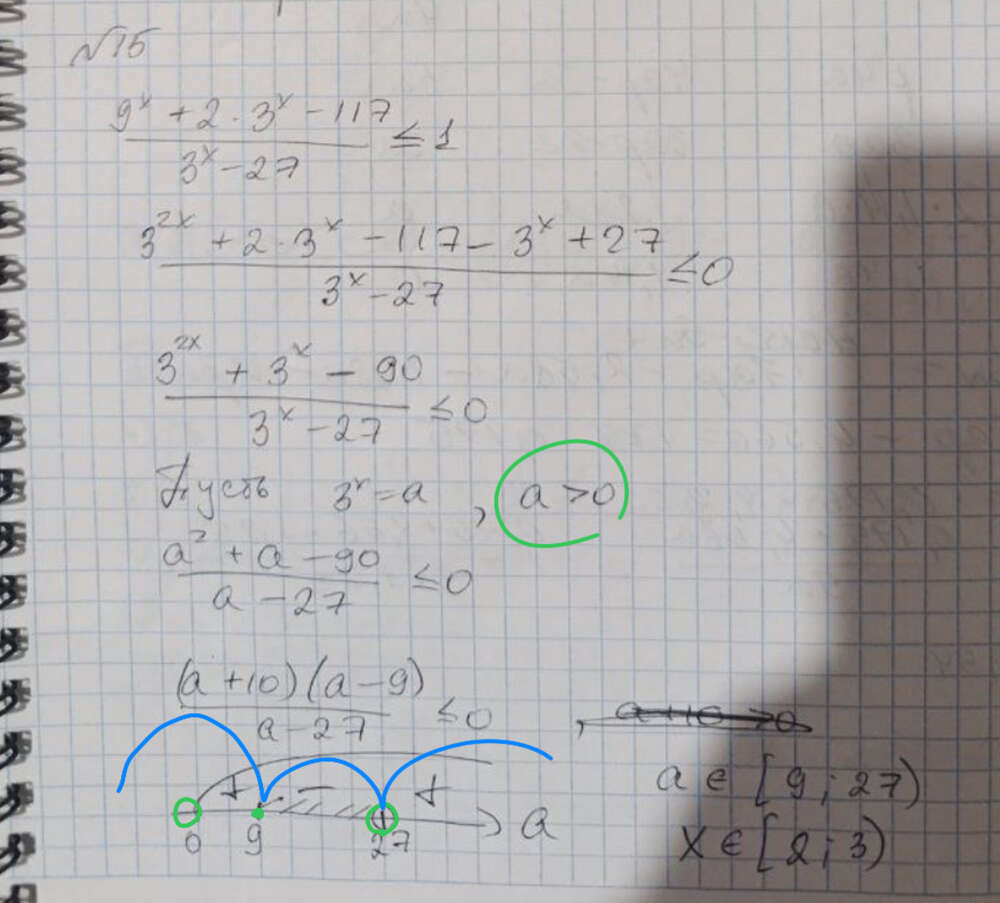 №15
(9^x + 2 · 3^x − 117)/(3^x − 27) ≤ 1
(3^(2x) + 2 · 3^x − 117 − 3^x + 27)/(3^x − 27) ≤ 0
(3^(2x) + 3^x − 90)/(3^x − 27) ≤ 0
Пусть 3^x = a, a > 0
(a² + a − 90)/(a − 27) ≤ 0
((a + 10)(a − 9))/(a − 27) ≤ 0,
+ − +
0 9 27 a
a ∈ [9; 27)
x ∈ [2; 3)